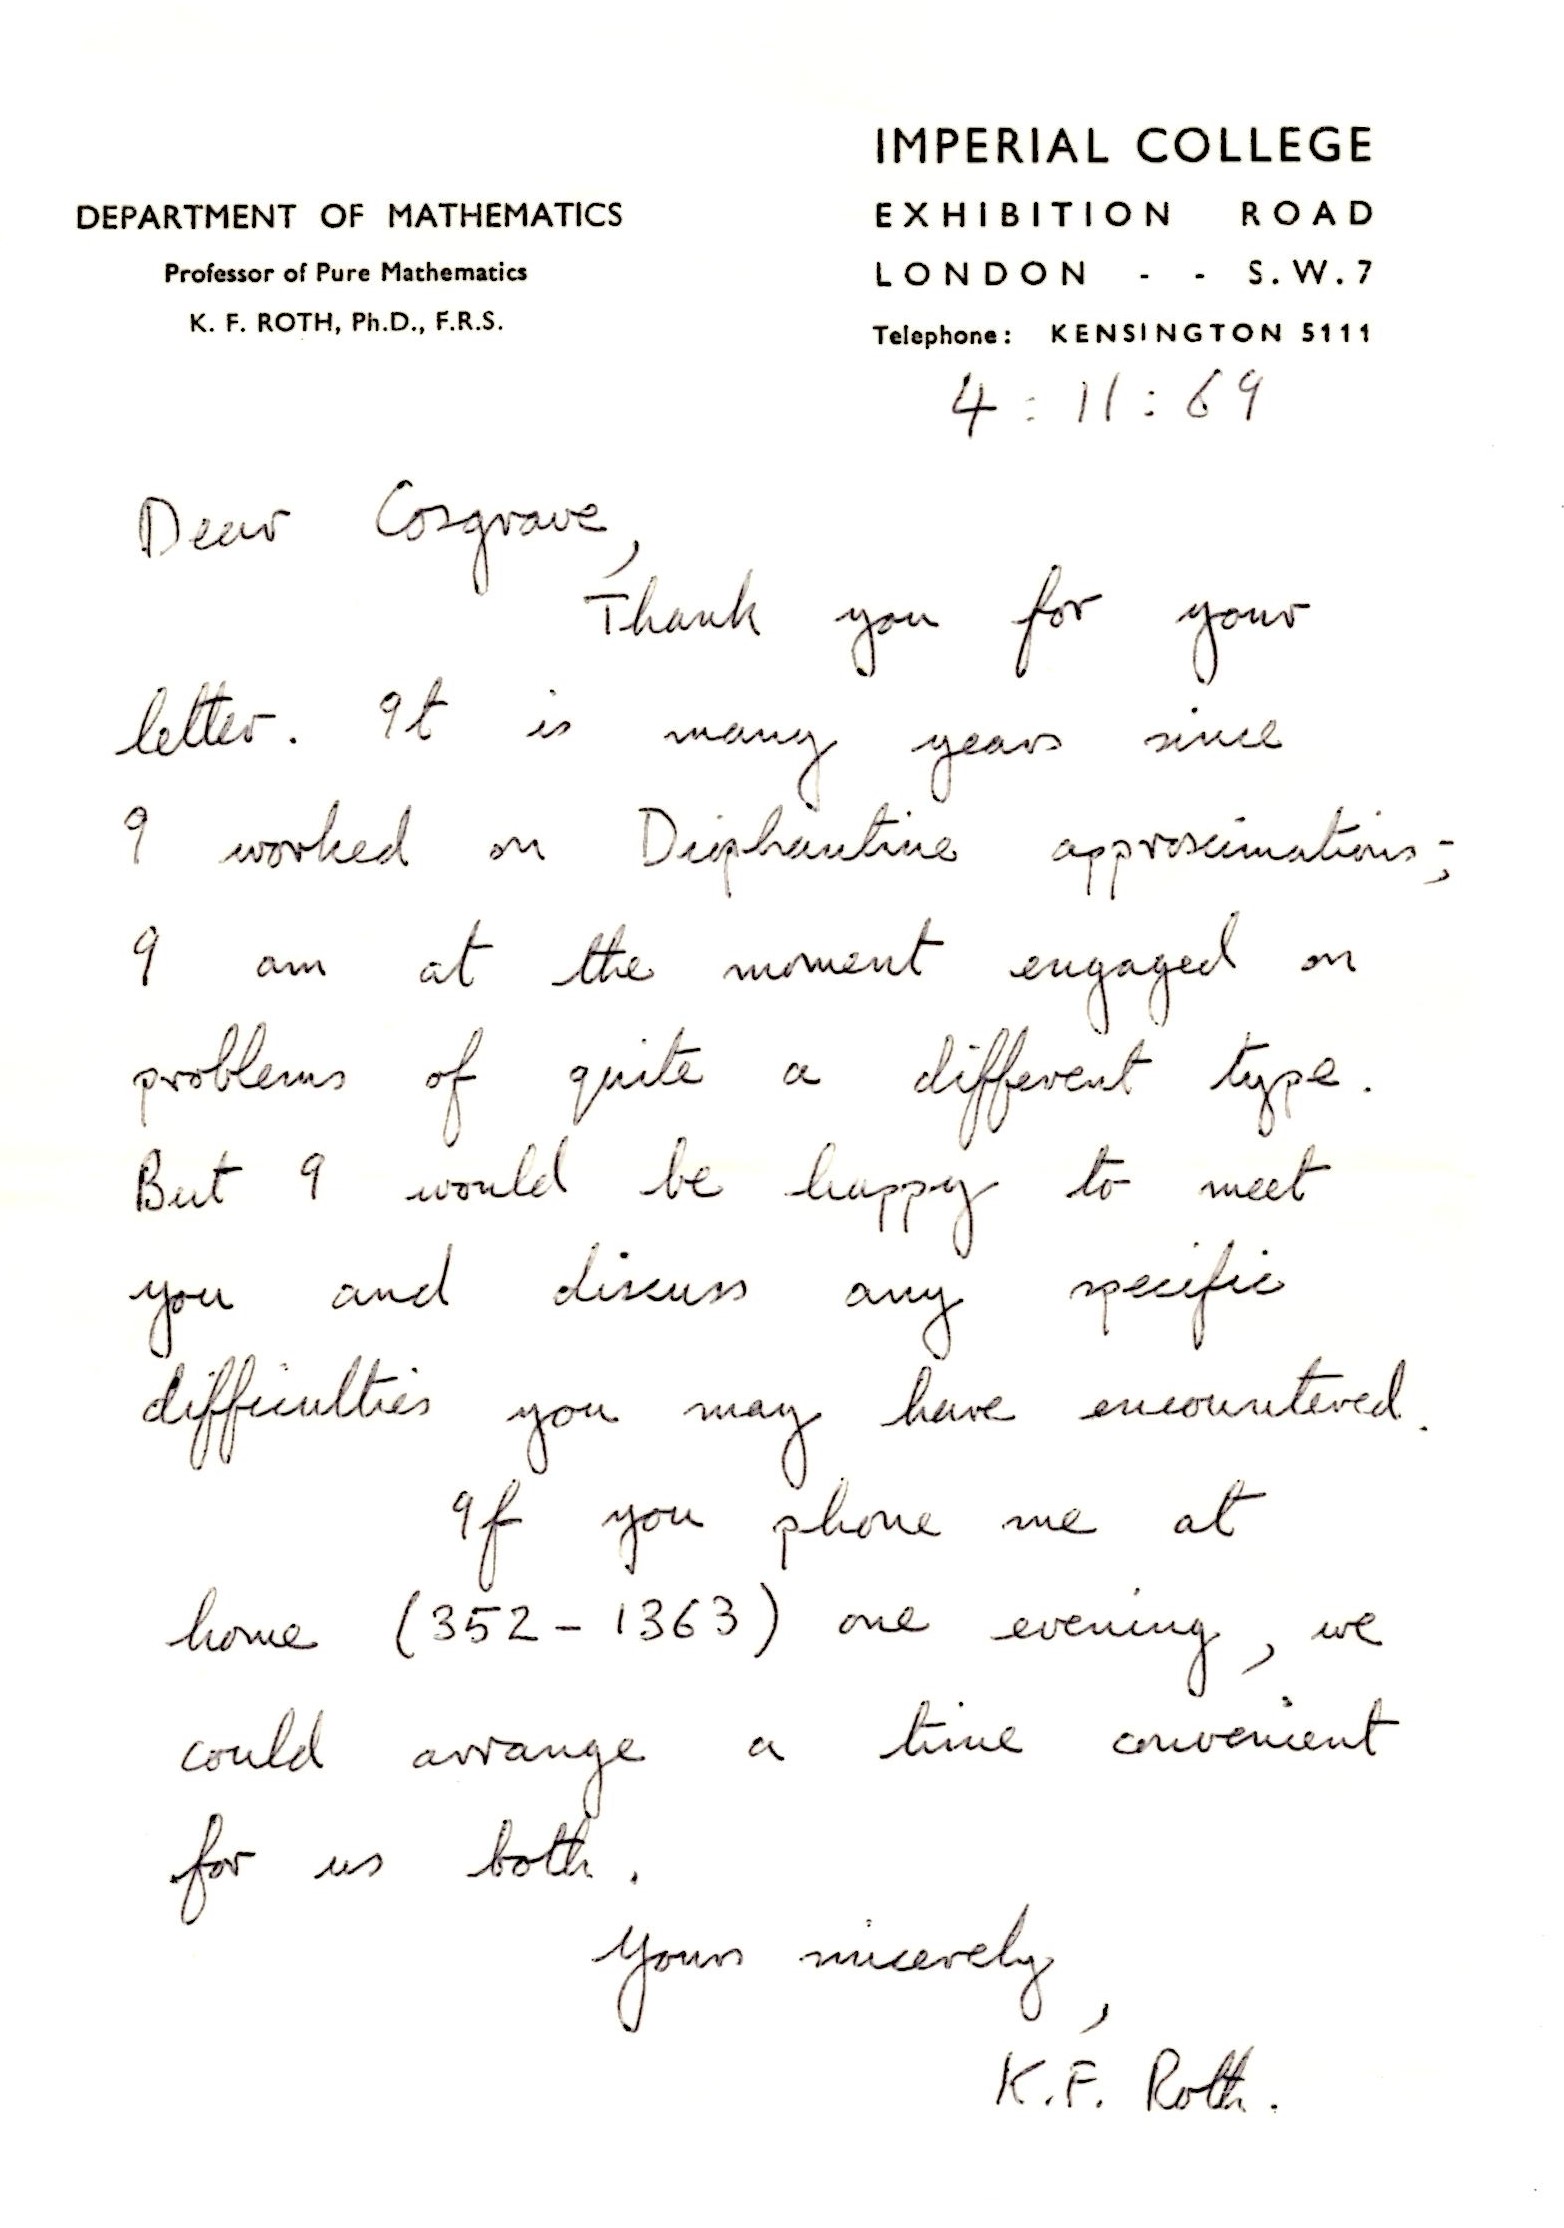 IMPERIAL COLLEGE
DEPARTMENT OF MATHEMATICS
EXHIBITION ROAD
Professor of Pure Mathematics
LONDON - - S.W.7
K. F. ROTH, Ph.D., F.R.S.
Telephone: KENSINGTON 5111
4 : 11 : 69
Dear Cosgrave,
Thank you for your
letter. It is many years since
I worked on Diophantine approximations;
I am at the moment engaged on
problems of quite a different type.
But I would be happy to meet
you and discuss any specific
difficulties you may have encountered.
If you phone me at
home (352-1363) one evening, we
could arrange a time convenient
for us both.
Yours sincerely,
K.F. Roth.